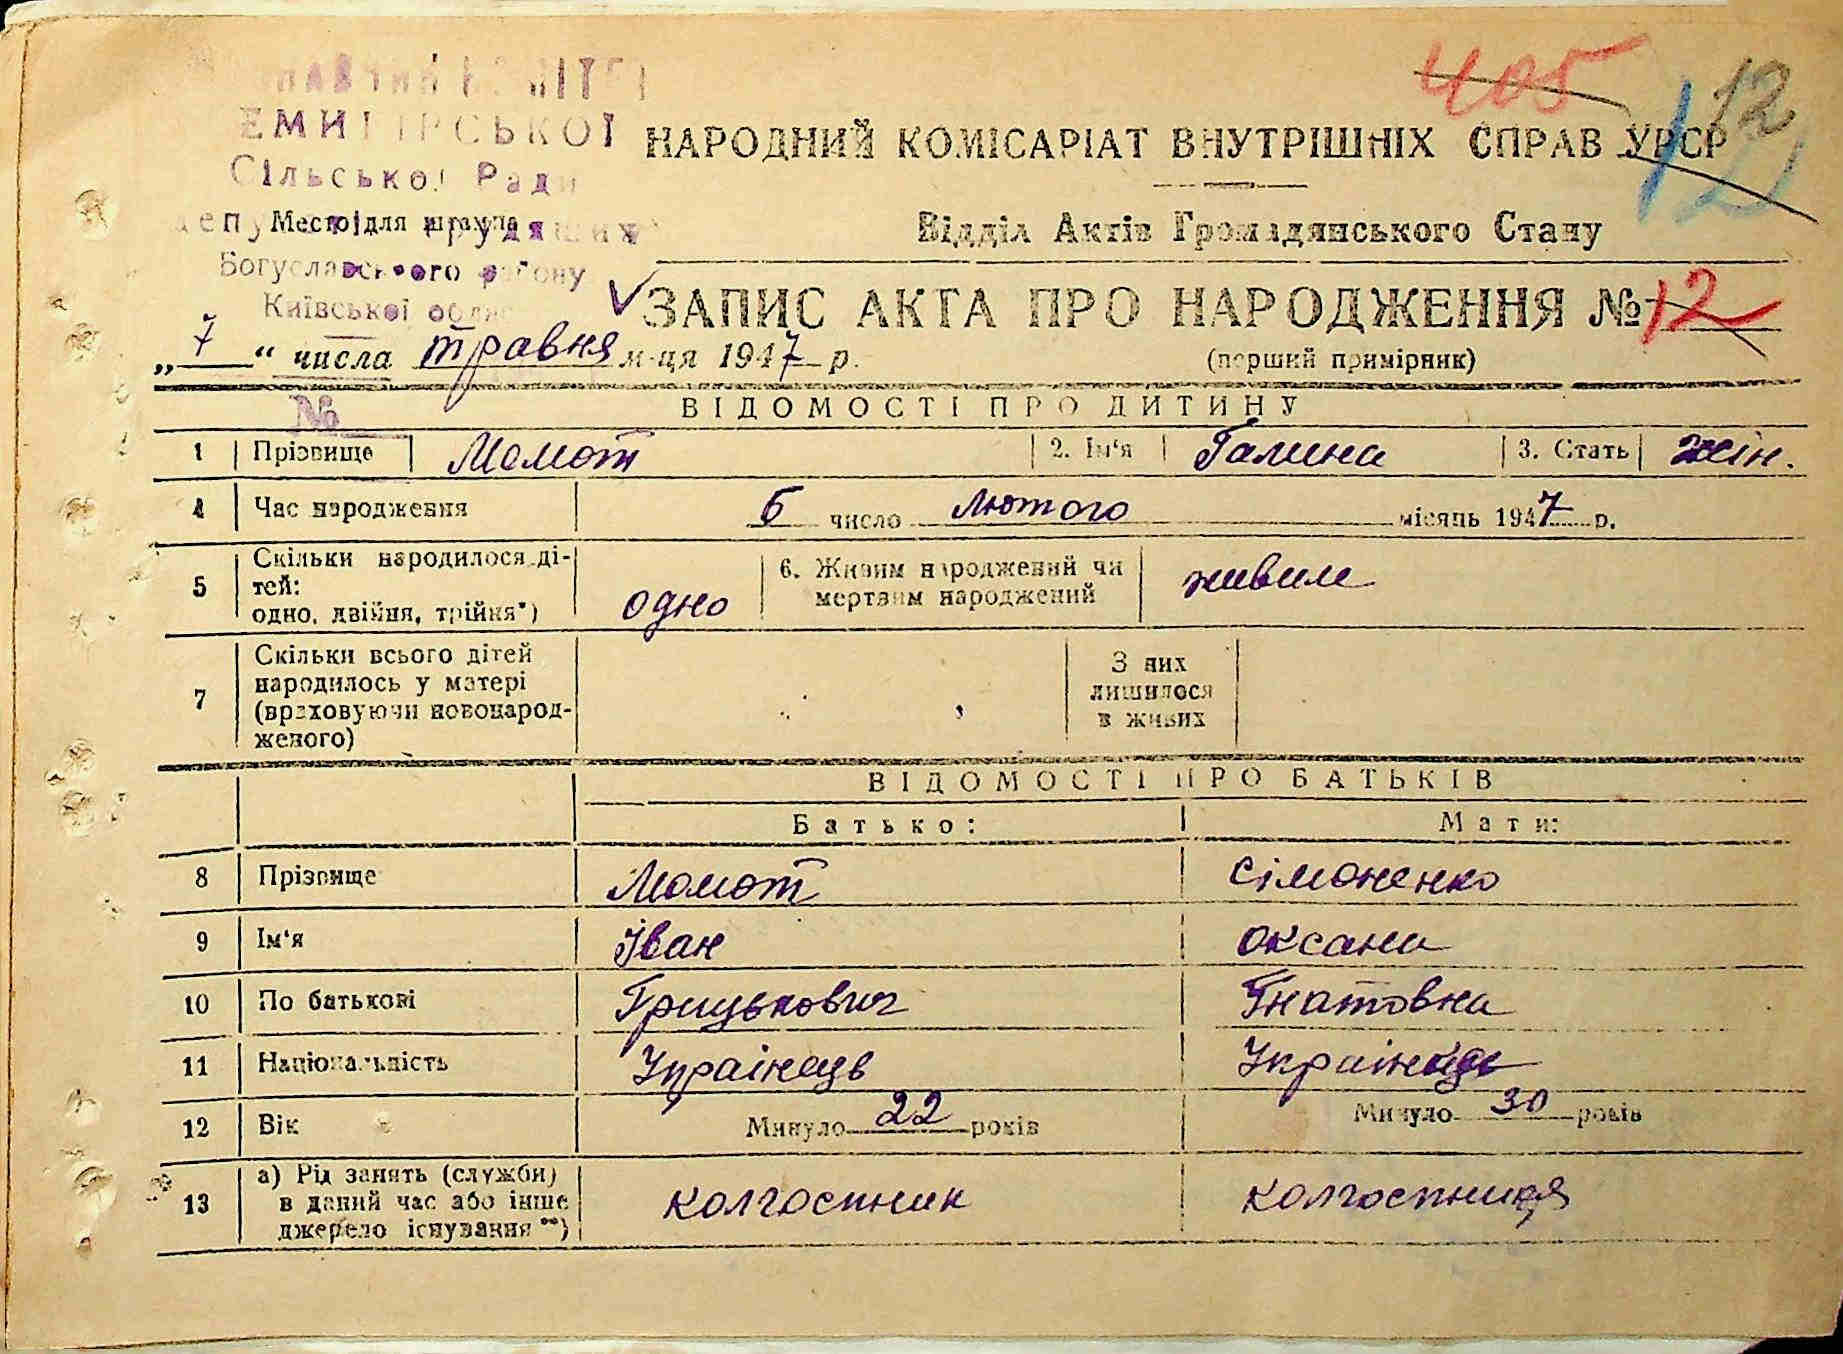 405 12
12
ЕМИГІРСЬКОЇ
Сільської Ради
Место для штампа
Богуславського району
Київської
НАРОДНИЙ КОМІСАРІАТ ВНУТРІШНІХ СПРАВ УРСР
Відділ Актів Громадянського Стану
ЗАПИС АКТА ПРО НАРОДЖЕННЯ № 12
„7“ числа травня м-ця 1947 р.
(перший примірник)
№
ВІДОМОСТІ ПРО ДИТИНУ
1 Прізвище Момот 2. Ім'я Галина 3. Стать жін.
4 Час народження 6 число Лютого місяць 1947 р.
5 Скільки народилося ді-
тей:
одно, двійня, трійня*) одно
6. Живим народжений чи
мертвим народжений живим
7 Скільки всього дітей
народилось у матері
(враховуючи новонарод-
женого)
З них
лишилося
в живих
ВІДОМОСТІ ПРО БАТЬКІВ
Батько: Мати:
8 Прізвище Момот Сімоненко
9 Ім'я Іван Оксана
10 По батькові Грицькович Гнатовна
11 Національність Українець Українка
12 Вік Минуло 22 років Минуло 30 років
13 а) Рід занять (служби)
в даний час або інше
джерело існування**) колгоспник колгоспниця